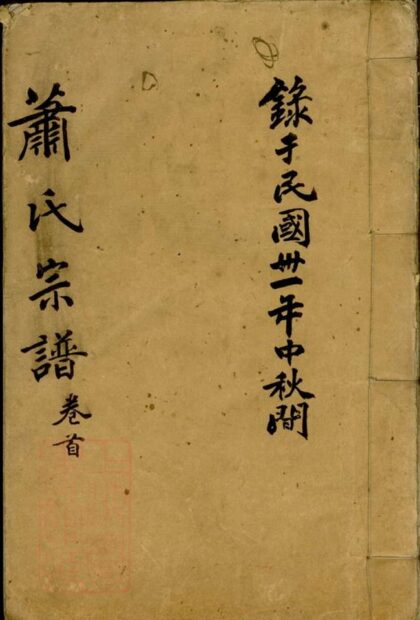 錄于民國卅一年中秋間
蕭氏宗譜 卷首